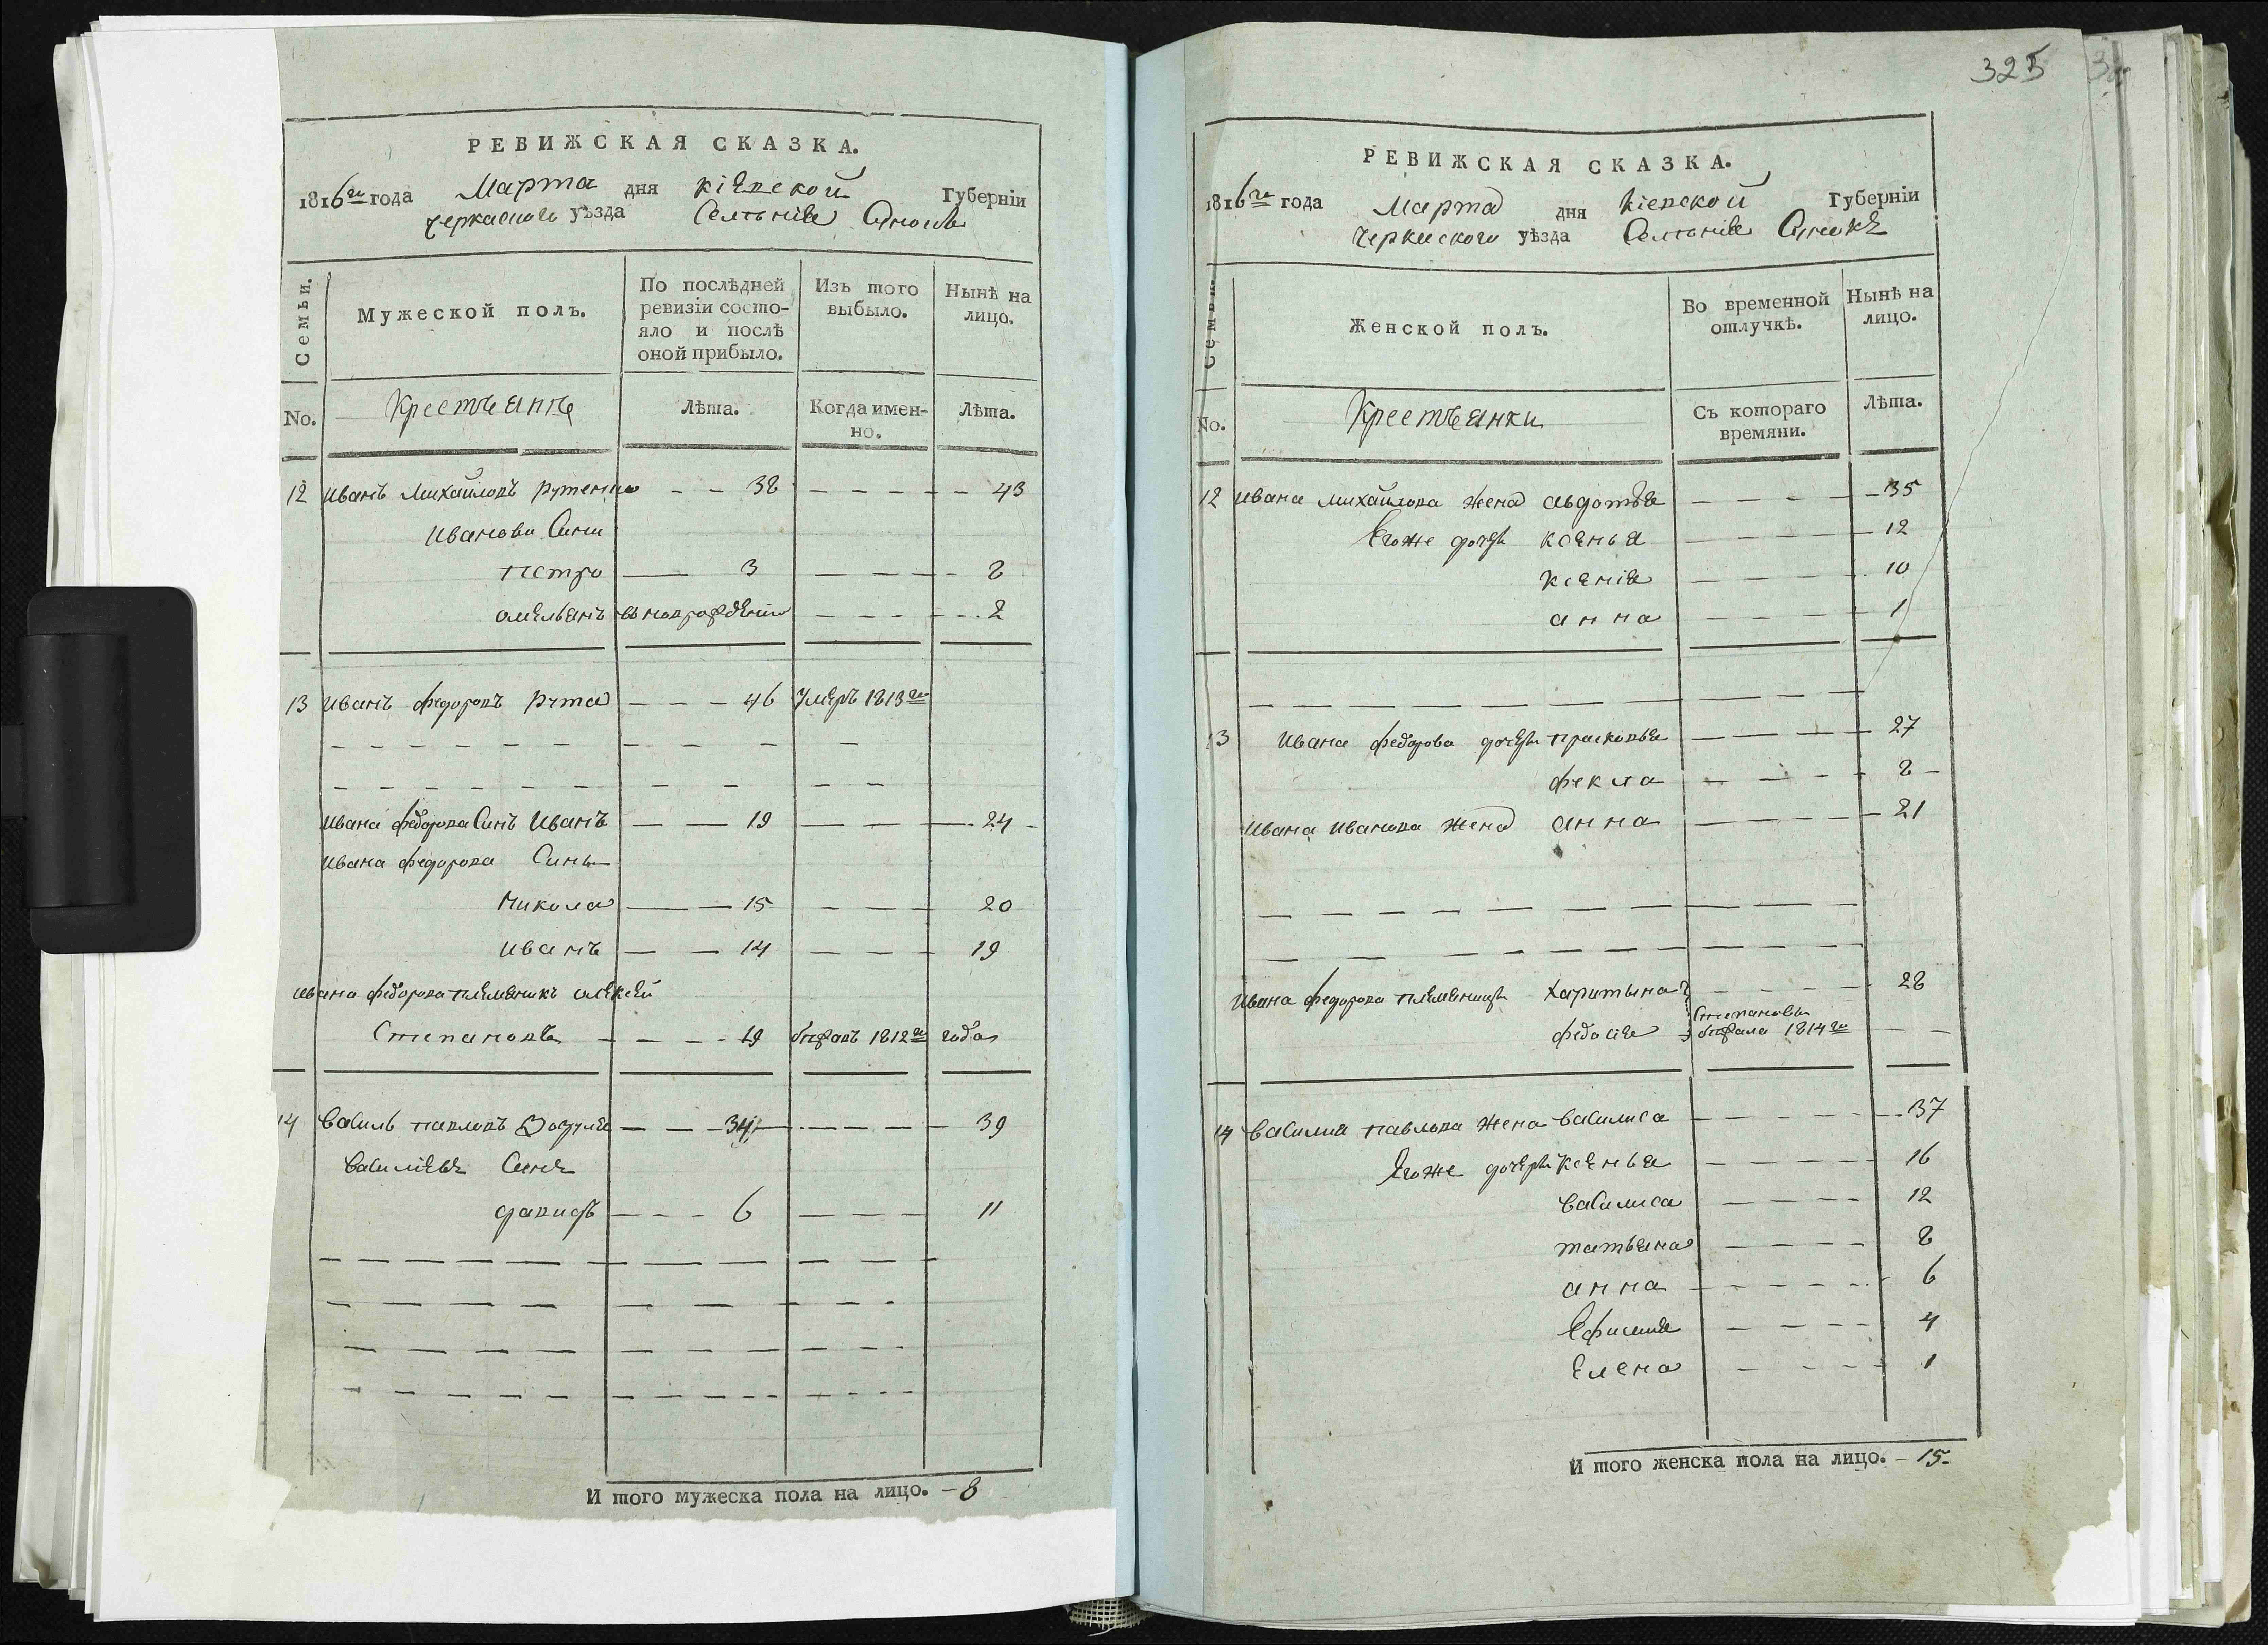 325
РЕВИЖСКАЯ СКАЗКА.
1816го года Марта дня Кіевской Губерніи
Черкаского уѣзда
Семьи.
Мужеской полъ.
По послѣдней ревизіи состо-
яло и послѣ оной прибыло.
Изъ того выбыло.
Нынѣ на лицо.
No.
Крестьяне
Лѣта.
Когда имен-
но.
Лѣта.
12 Иванъ Михайловъ Рутенко 38 43
Иванови Сини
Петро 3 8
Омельянъ вноворожденъ 2
13 Иванъ Федоровъ Рута 46 Умеръ 1813го
Ивана Федорова Синъ Иванъ 19 24
Ивана Федорова Сины
Микола 15 20
Иванъ 14 19
Ивана Федорова племеникъ Алексей
Степановъ 19 бежавъ 1812го года
14 Василь Павловъ 34 39
Василіеве Сине
Давидъ 6 11
И того мужеска пола на лицо. 8
РЕВИЖСКАЯ СКАЗКА.
1816го года Марта дня Кіевской Губерніи
Черкаского уѣзда
Семьи
Женской полъ.
Во временной
отлучкѣ.
Нынѣ на
лицо.
No.
Крестьянки
Съ котораго
времяни.
Лѣта.
12 Ивана Михайлова жена Авдотья 35
Егоже дочери Ксенья 12
Ксенія 10
Анна 1
13 Ивана Федорова дочери Прасковья 27
Фекла 8
Ивана Иванова жена Анна 21
Ивана Федорова племеници Харитына 28
Степановы
Федосія бежала 1814го
14 Василия Павлова жена Василиса 37
Егоже дочери Ксенья 16
Василиса 12
Татьяна 8
Анна 6
Ефимия 4
Елена 1
И того женска пола на лицо. 15